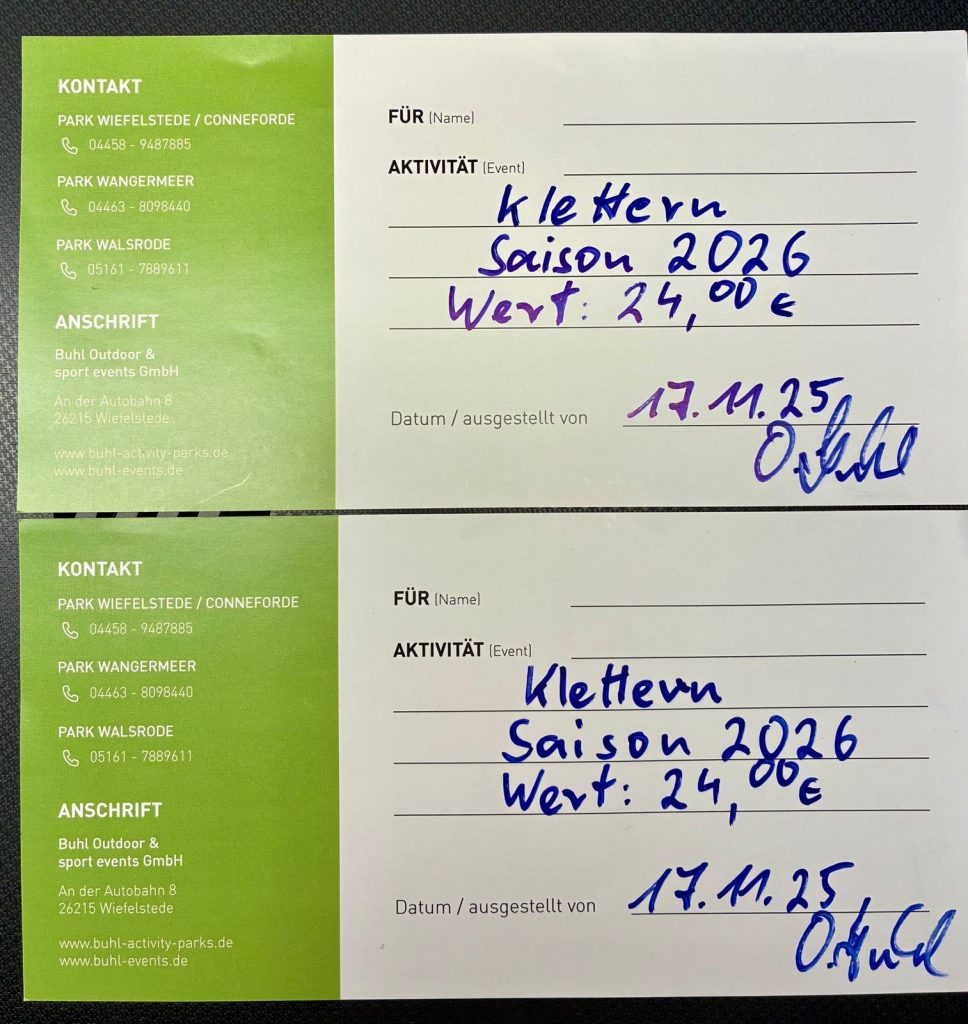 KONTAKT
PARK WIEFELSTEDE / CONNEFORDE
04458 - 9487885
PARK WANGERMEER
04463 - 8098440
PARK WALSRODE
05161 - 7889611
ANSCHRIFT
Buhl Outdoor &
sport events GmbH
An der Autobahn 8
26215 Wiefelstede
www.buhl-activity-parks.de
www.buhl-events.de
FÜR (Name)
AKTIVITÄT (Event)
Klettern
Saison 2026
Wert: 24,00 €
Datum / ausgestellt von 17.11.25
KONTAKT
PARK WIEFELSTEDE / CONNEFORDE
04458 - 9487885
PARK WANGERMEER
04463 - 8098440
PARK WALSRODE
05161 - 7889611
ANSCHRIFT
Buhl Outdoor &
sport events GmbH
An der Autobahn 8
26215 Wiefelstede
www.buhl-activity-parks.de
www.buhl-events.de
FÜR (Name)
AKTIVITÄT (Event)
Klettern
Saison 2026
Wert: 24,00 €
Datum / ausgestellt von 17.11.25,